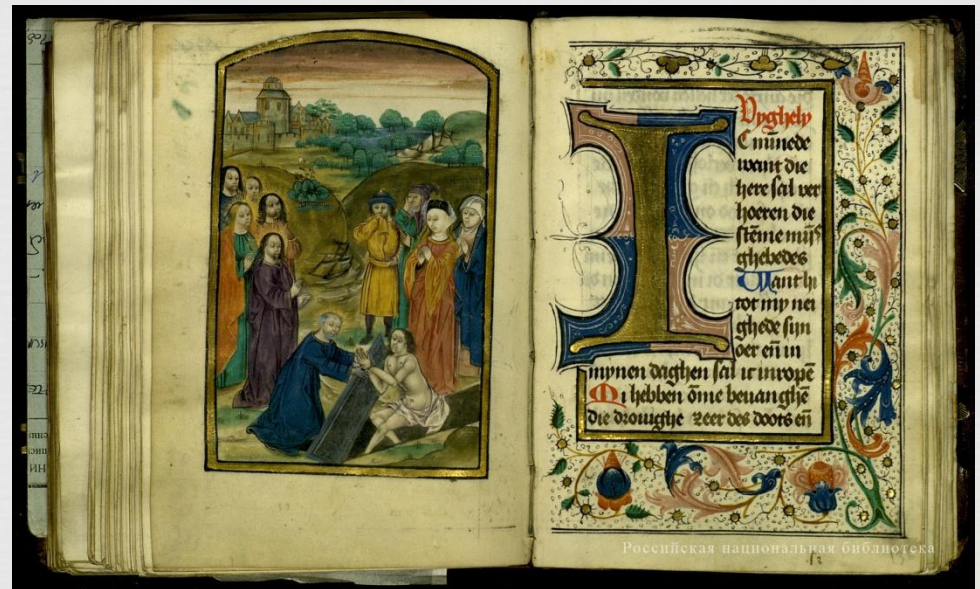 I
Vyghely
C mīnede
want die
here sal ver
hoeren die
stēme mijs
ghebedes
Want hi
tot my nei
ghede sijn
oer eñ in
mynen daghen sal ic inropē
Mi hebben ōme beuanghē
die drouighe zeer des doots eñ
Российская национальная библиотека